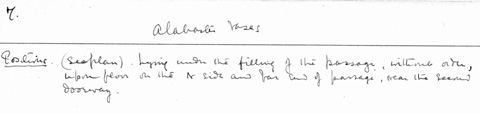 7.
Alabaster Vases
Positions. (see plan). Lying under the filling of the passage, without order,
upon floor on the N side and far end of passage, near the second
doorway.